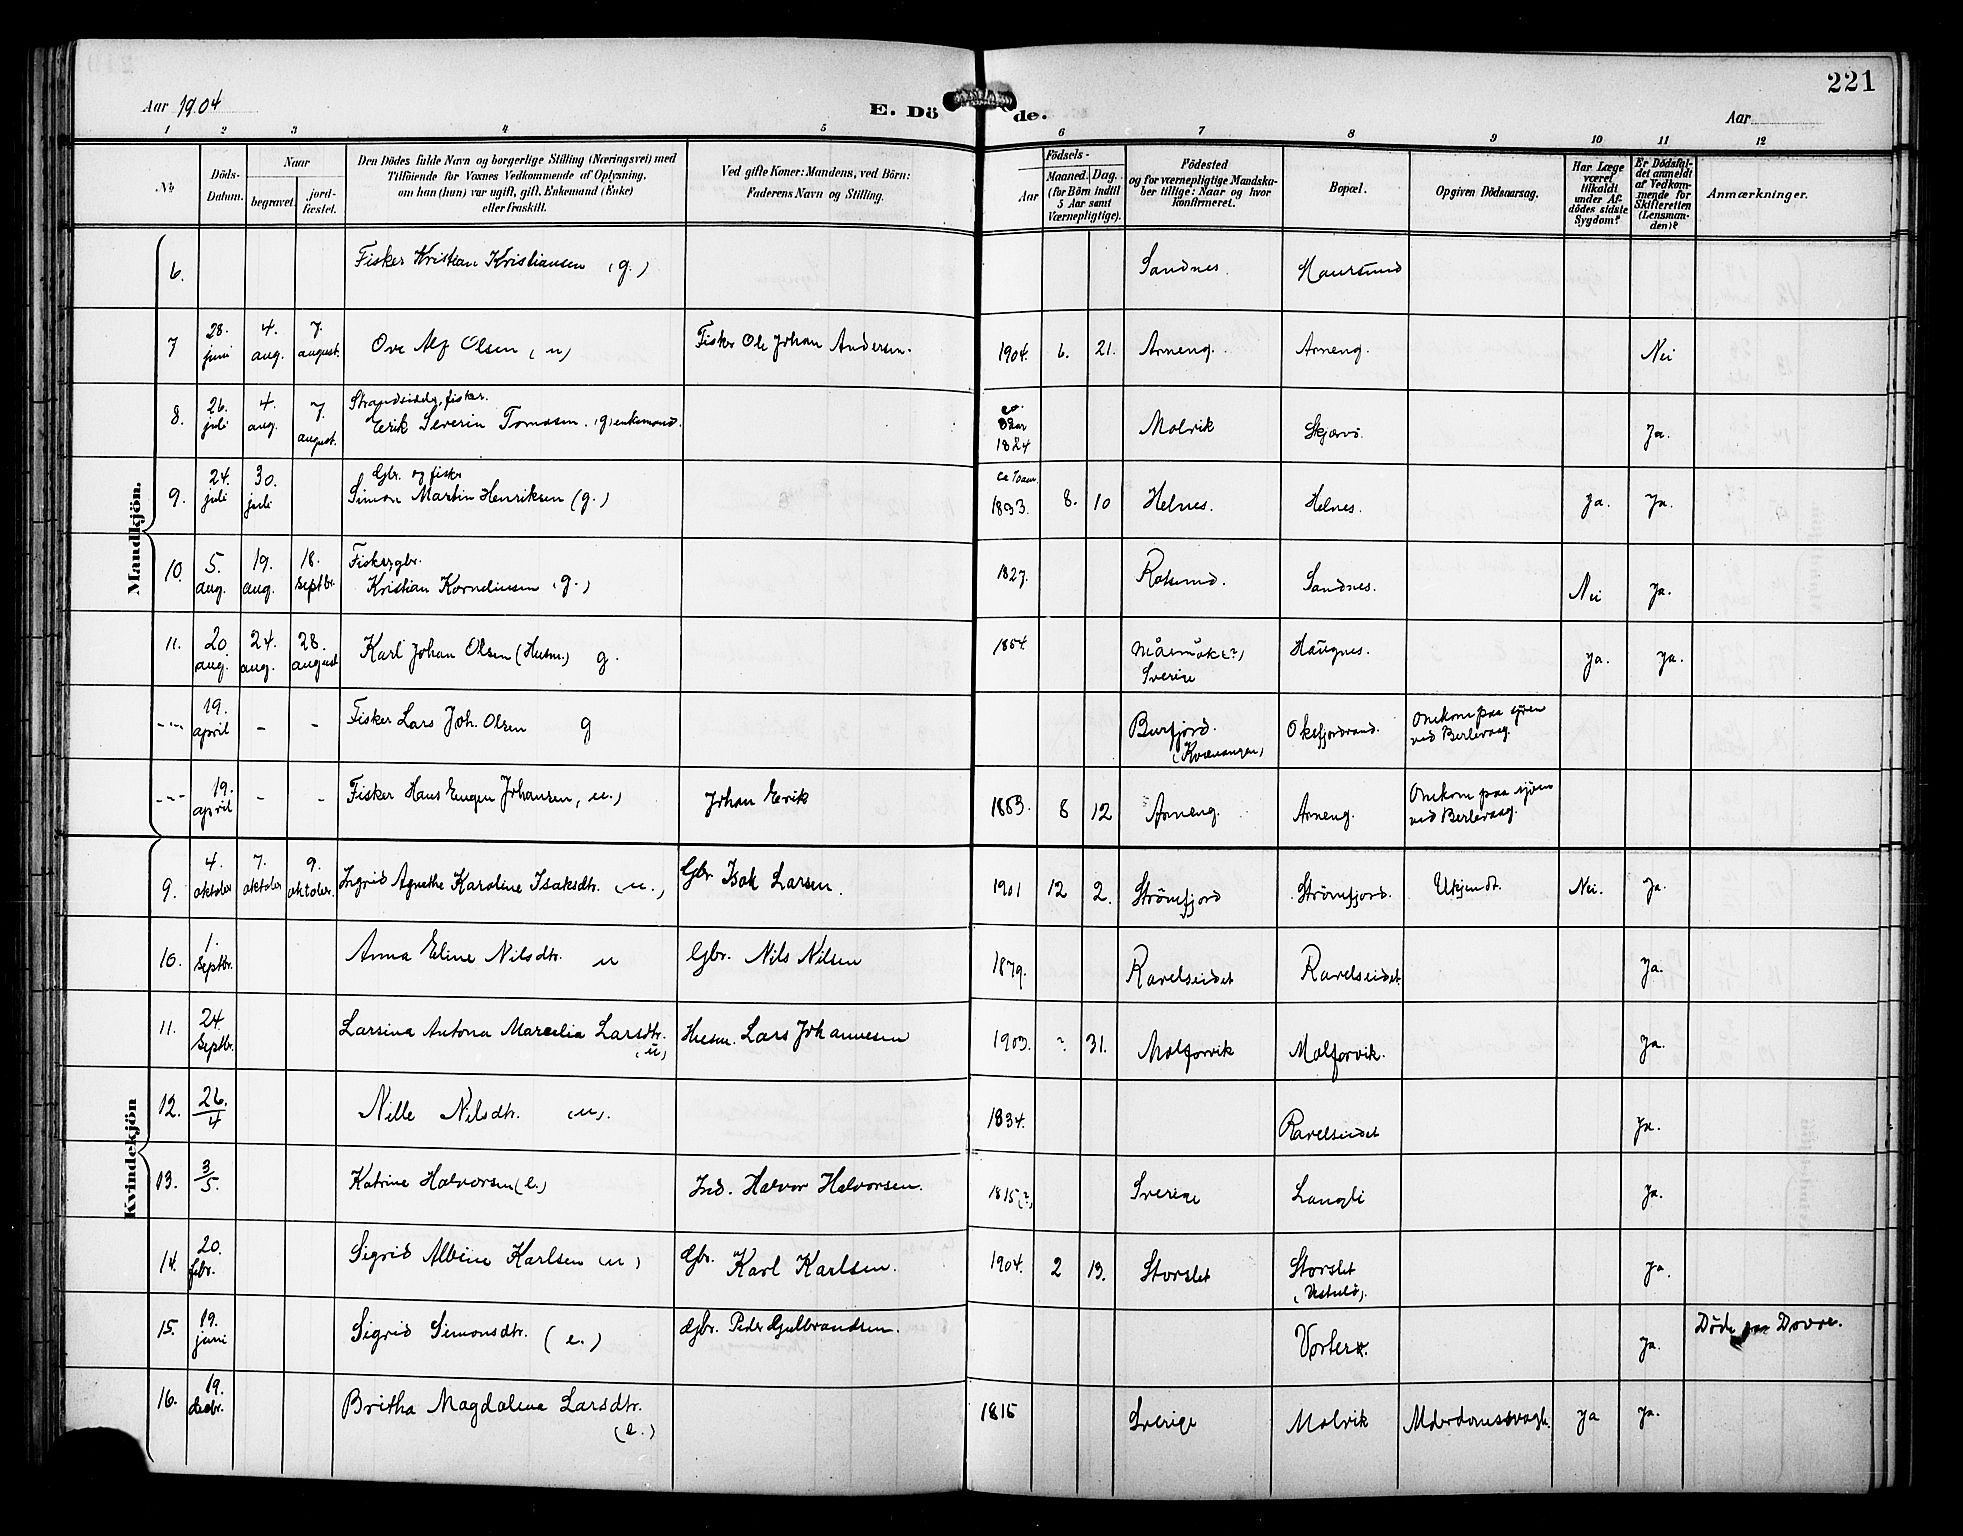 221
Aar 1904
E. Dö
de.
Aar
1 2 3 4 5 6 7 8 9 10 11 12
Nr.
Döds-
Datum.
Naar
begravet.
jord-
fæstet.
Den Dödes fulde Navn og borgerlige Stilling (Næringsvei) med
Tilföiende for Voxnes Vedkommende af Oplysning,
om han (hun) var ugift, gift, Enkemand (Enke)
eller fraskilt.
Ved gifte Koner: Mandens, ved Börn:
Faderens Navn og Stilling.
Födsels-
Aar
Maaned. Dag.
(for Börn indtil
5 Aar samt
Værnepligtige).
Födested
og for værnepligtige Mandska-
ber tillige: Naar og hvor
konfirmeret.
Bopæl.
Opgiven Dödsaarsag.
Har Læge
været
tilkaldt
under Af-
dödes sidste
Sygdom?
Er Dödsfal-
det anmeldt
af Vedkom-
mende for
Skifteretten
(Lensman-
den)?
Anmærkninger.
Mandkjön.
6. Fisker Kristian Kristiansen (g.) Sandnes. Maursund
7 28. juni 4. aug. 7. august. Ove Alf Olsen (u) Fisker Ole Johan Andersen. 1904. 6. 21. Arneng. Arneng. Nei
Strandsidder, fisker.
8. 26. juli 4. aug. 7. august. Erik Severin Tomasen. (g) enkemand. 1824 Molvik Skjervö. Ja.
Gbr. og fisker
9. 24. juli 30. juli Simon Martin Henriksen (g.) 1833. 8. 10 Helnes. Helnes. Ja. Ja.
Fisker, gbr.
10. 5. aug. 19. aug. 18. septbr. Kristian Korneliusen (g.) 1827. Rotsund. Sandnes. Nei Ja.
11. 20 aug. 24. aug. 28. august Karl Johan Olsen (Husm.) g. 1854 Sverige Haugnes. Ja. Ja.
--- 19. april - - Fisker Lars Joh. Olsen g Burfjord. (Kvænangen) Okefjordvand. Omkom paa sjöen
ved Berlevaag.
--- 19. april - - Fisker Hans Eugen Johansen, u.) Johan Erik 1883. 8 12 Arneng. Arneng. Omkom paa sjöen
ved Berlevaag.
Kvindekjön
9. 4. oktober 7. oktober 9. oktober. Ingrid Agnethe Karoline Isaksdtr. (u.) Gbr Isak Larsen. 1901 12 2. Strömfjord Strömfjord. Ukjendt. Nei. Ja.
10. 1. septbr. Anna Eline Nilsdtr. u Gbr. Nils Nilsen 1879. Ravelseidet Ravelseidet. Ja.
11. 24. septbr. Larsina Antona Marcelia Larsdtr. (u) Husm. Lars Johannesen 1903. ? 31. Molforvik Molforvik. Ja.
12. 26./4 Nille Nilsdtr. (u). 1834. Ravelseidet Ja.
13. 3/5. Katrine Halvorsen (e.) Ind. Halvor Halvorsen. 1815 (?) Sverige Langli Ja.
14. 20. febr. Sigrid Albine Karlsen (u) Gbr. Karl Karlsen. 1904. 2 13. Storslet Storslet Ja.
15. 19. juni Sigrid Simonsdtr. (e.) Gbr. Peder Gulbrandsen. Vorterö. Ja. Döde paa Dovre.
16. 19. decbr. Britha Magdalena Larsdtr. (e.) 1815 Sverige Molvik Alderdomssvagh. Ja Ja.